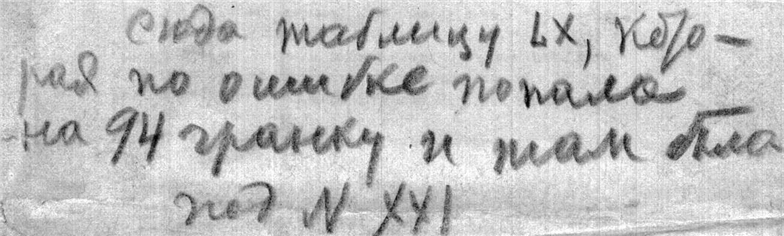 сюда таблицу LX, кото-
рая по ошибке попала
на 94 гранку и там была
под N XXI